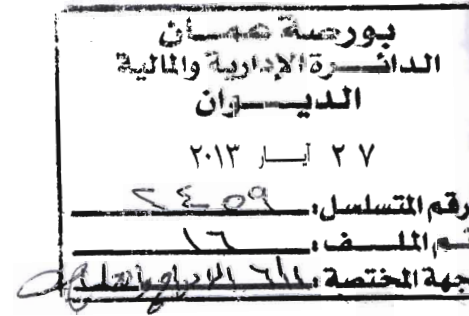 بورصة عمان
الدائرة الإدارية والمالية
الديوان
٢٧ أيار ٢٠١٣
رقم المتسلسل: ٢٤٥٩
رقم الملف: ١٦
جهة المختصة: